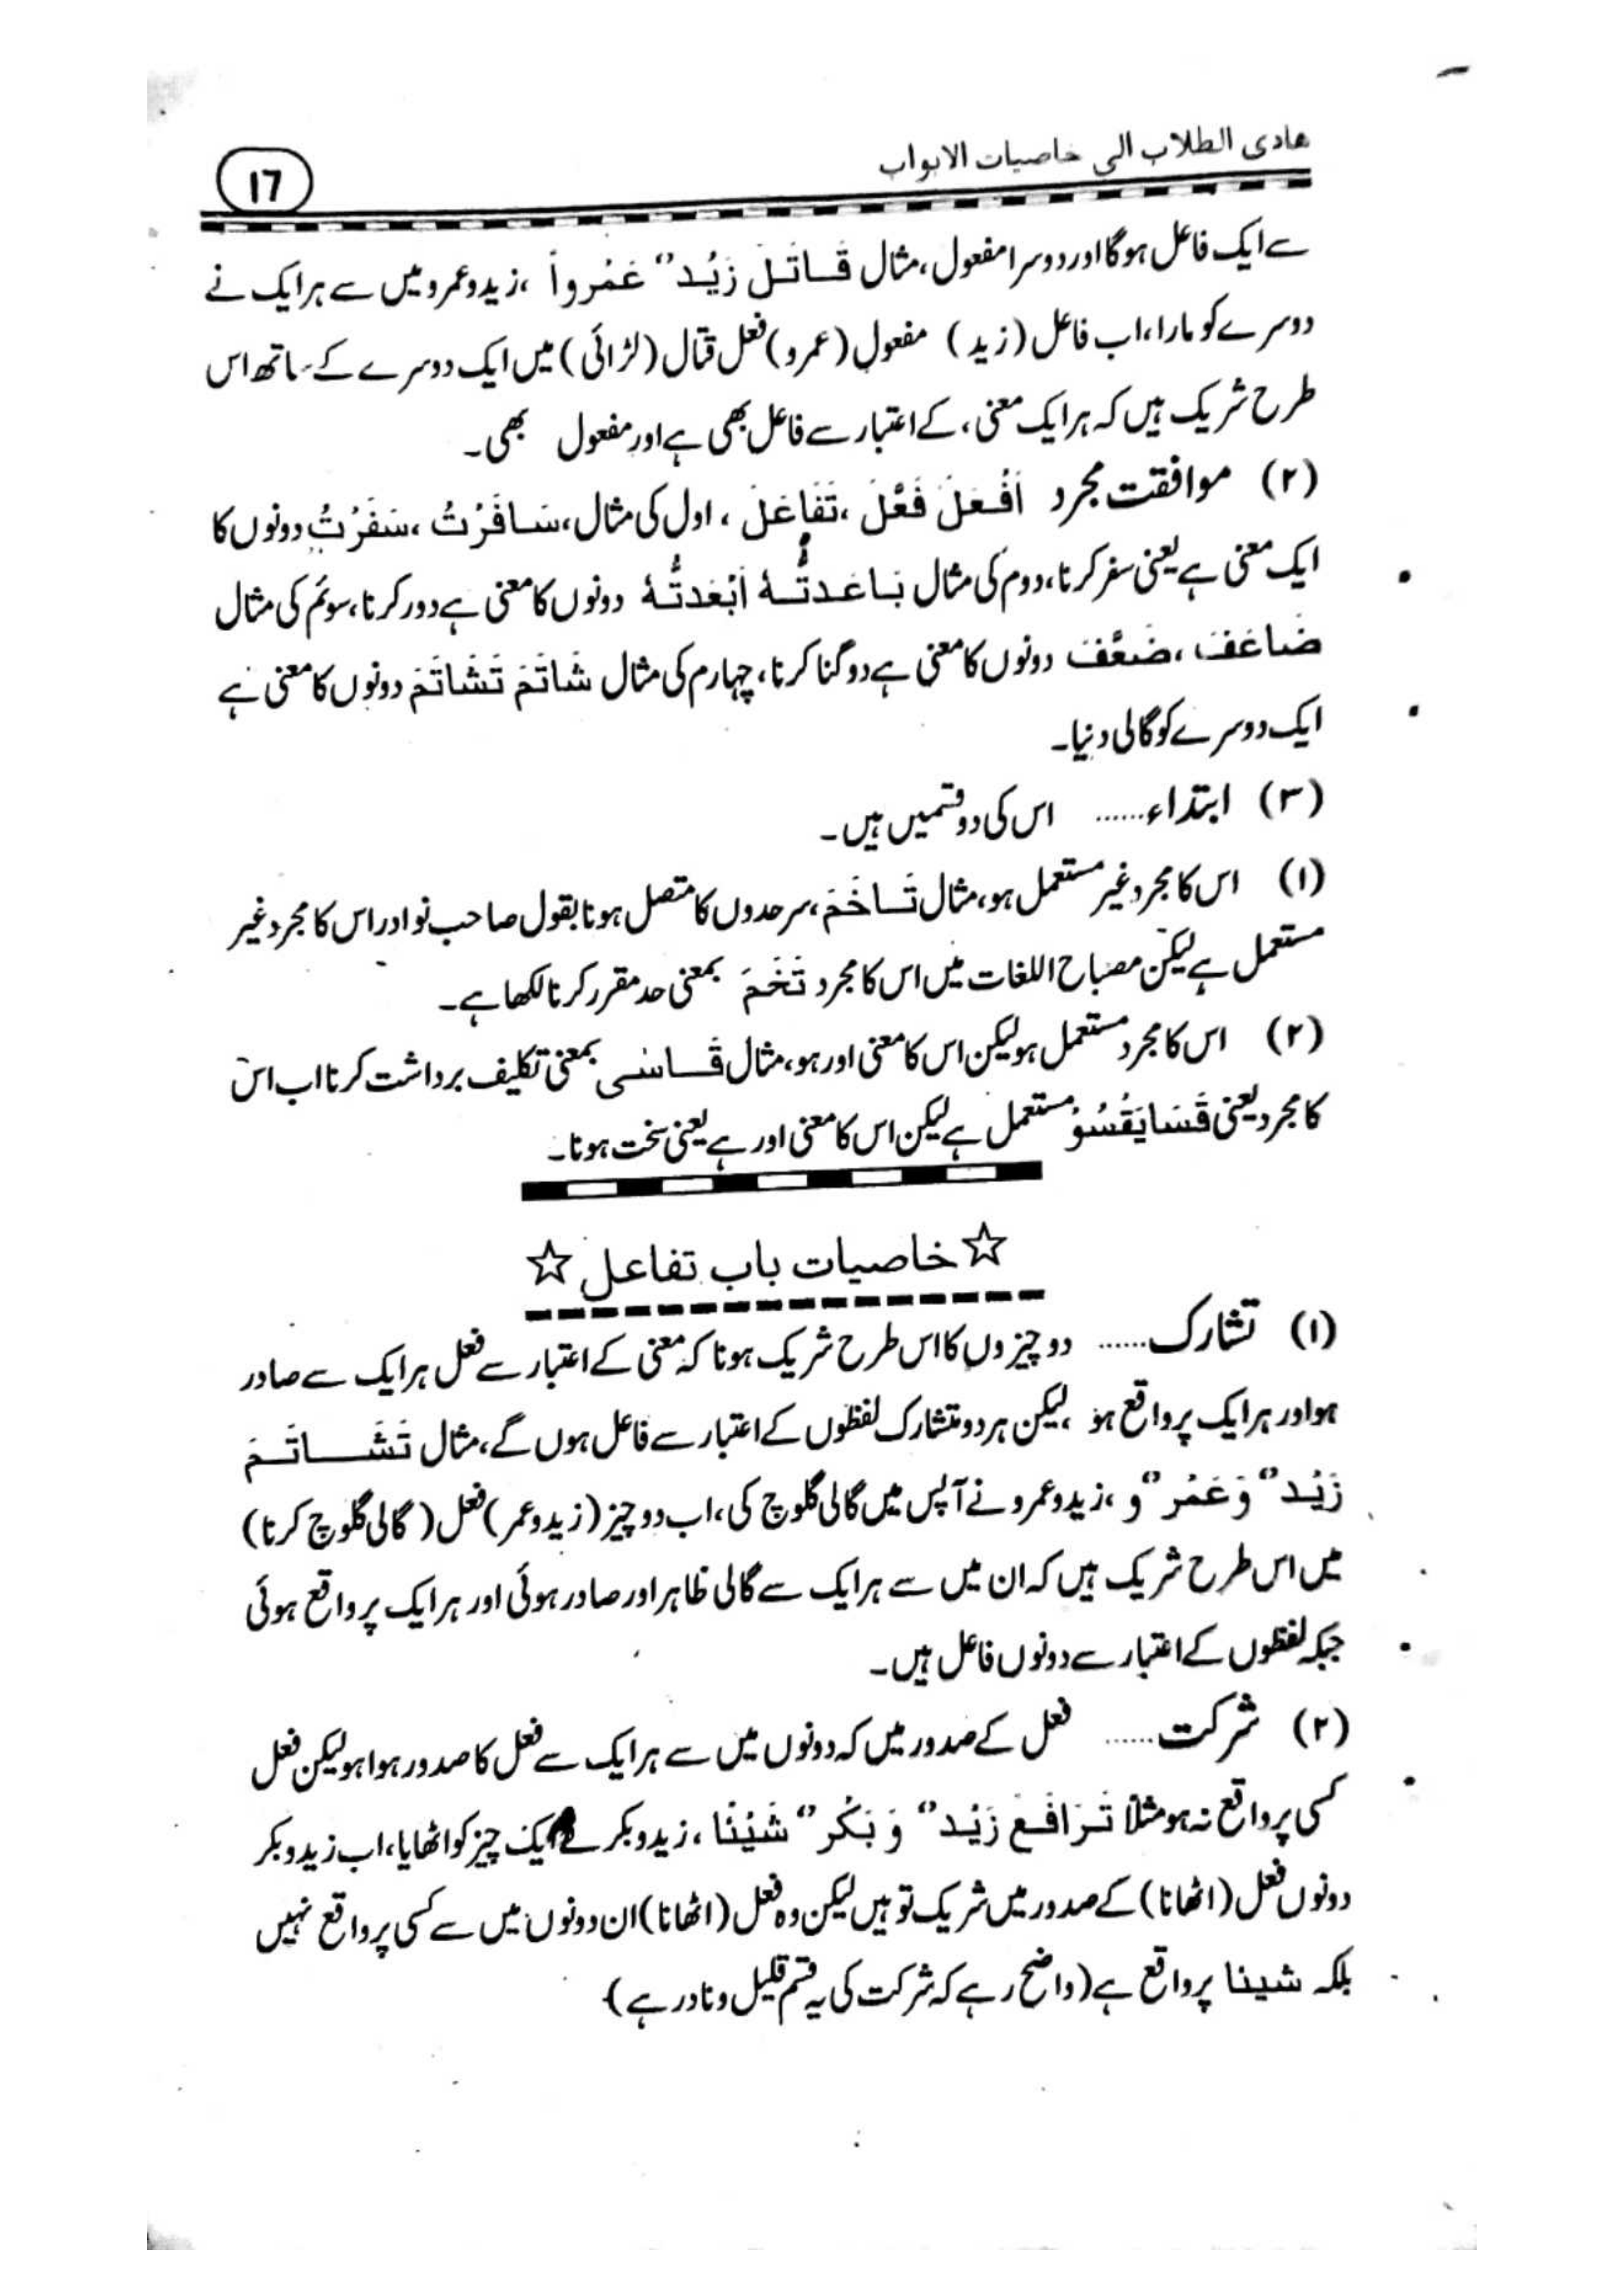 ھادی الطلاب الی خاصیات الابواب
١٧
سے ایک فاعل ہوگا اور دوسرا مفعول، مثال قَاتَلَ زَیْد'' عَمْرواً ، زید و عمرو میں سے ہر ایک نے
دوسرے کو مارا، اب فاعل (زید) مفعول (عمرو) فعل قتال (لڑائی) میں ایک دوسرے کے ساتھ اس
طرح شریک ہیں کہ ہر ایک معنی، کے اعتبار سے فاعل بھی ہے اور مفعول بھی۔
(۲) موافقت مجرد اَفْعَلَ فَعَّلَ ،تَفَاعَلَ ، اول کی مثال، سَافَرْتُ ،سَفَرْتُ دونوں کا
ایک معنی ہے یعنی سفر کرنا، دوم کی مثال بَاعَدتُّہٗ اَبْعَدتُّہٗ دونوں کا معنی ہے دور کرنا، سوئم کی مثال
ضَاعَفَ ،ضَعَّفَ دونوں کا معنی ہے دوگنا کرنا، چہارم کی مثال شَاتَمَ تَشَاتَمَ دونوں کا معنی ہے
ایک دوسرے کو گالی دنیا۔
(۳) ابتداء...... اس کی دو قسمیں ہیں۔
(۱) اس کا مجرد غیر مستعمل ہو، مثال تَاخَمَ، سرحدوں کا متصل ہونا بقول صاحب نوادر اس کا مجرد غیر
مستعمل ہے لیکن مصباح اللغات میں اس کا مجرد تَخَمَ بمعنی حد مقرر کرنا لکھا ہے۔
(۲) اس کا مجرد مستعمل ہو لیکن اس کا معنی اور ہو، مثال قَاسٰی بمعنی تکلیف برداشت کرنا اب اس
کا مجرد یعنی قَسَا یَقْسُوْ مستعمل ہے لیکن اس کا معنی اور ہے یعنی سخت ہونا۔
☆خاصیات باب تفاعل☆
(۱) تشارک...... دو چیزوں کا اس طرح شریک ہونا کہ معنی کے اعتبار سے فعل ہر ایک سے صادر
ہو اور ہر ایک پر واقع ہو ، لیکن ہر دو متشارک لفظوں کے اعتبار سے فاعل ہوں گے، مثال تَشَاتَمَ
زَیْد'' وَعَمْر''و ، زید و عمرو نے آپس میں گالی گلوچ کی، اب دو چیز (زید و عمر) فعل (گالی گلوچ کرنا)
میں اس طرح شریک ہیں کہ ان میں سے ہر ایک سے گالی ظاہر اور صادر ہوئی اور ہر ایک پر واقع ہوئی
جبکہ لفظوں کے اعتبار سے دونوں فاعل ہیں۔
(۲) شرکت...... فعل کے صدور میں کہ دونوں میں سے ہر ایک سے فعل کا صدور ہوا ہو لیکن فعل
کسی پر واقع نہ ہو مثلا تَرَافَعَ زَیْد'' وَ بَکْر'' شَیْئًا ، زید و بکر نے ایک چیز کو اٹھایا، اب زید و بکر
دونوں فعل (اٹھانا) کے صدور میں شریک تو ہیں لیکن وہ فعل (اٹھانا) ان دونوں میں سے کسی پر واقع نہیں
بلکہ شینا پر واقع ہے (واضح رہے کہ شرکت کی یہ قسم قلیل و نادر ہے)